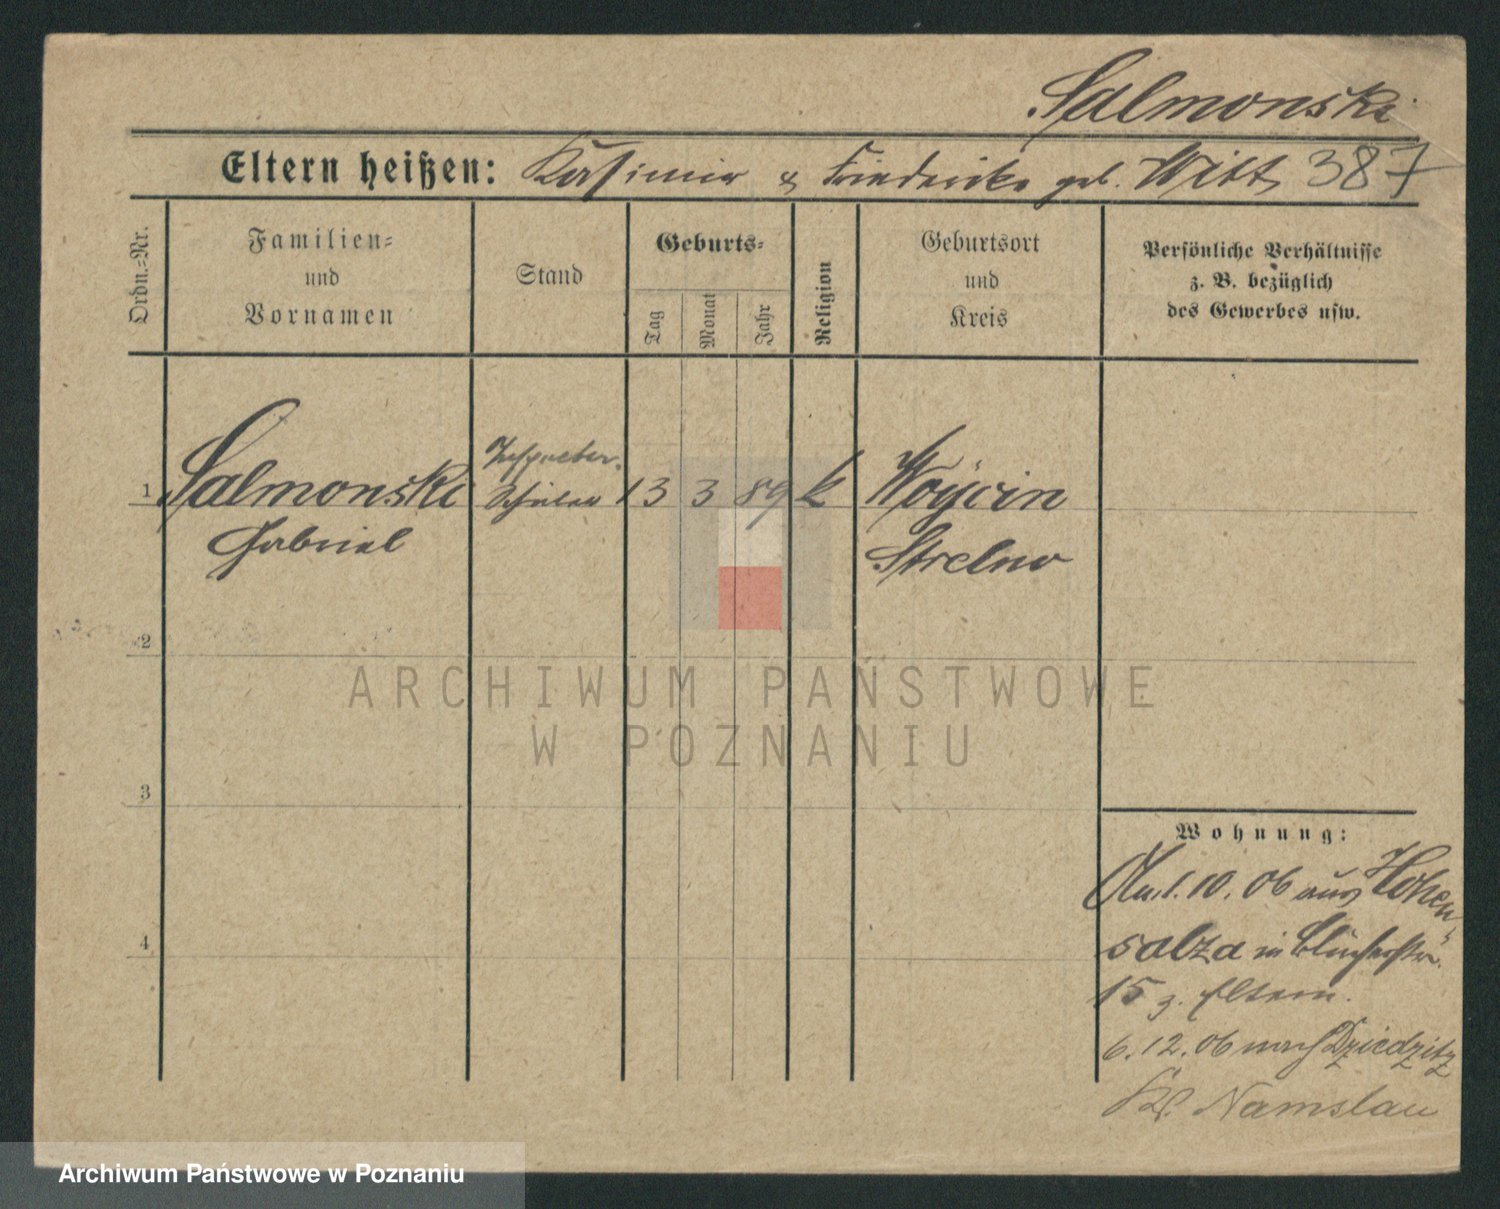 Salmonski
Eltern heißen: Kasimir & Friederike geb. Witt 387
Ordn.-Nr.
Familien-
und
Vornamen
Stand
Geburts-
Tag
Monat
Jahr
Religion
Geburtsort
und
Kreis
Persönliche Verhältnisse
z. B. bezüglich
des Gewerbes usw.
Inspector.
1 Salmonski Schüler 13 3 89 k Woÿcin
Gabriel Strelno
2
ARCHIWUM PAŃSTWOWE
W POZNANIU
3
Wohnung:
1.10.06 aus Hohen-
4
salza in Blücherstr.
15 z. Eltern.
6.12.06 nach Dziedzitz
Kr. Namslau
Archiwum Państwowe w Poznaniu